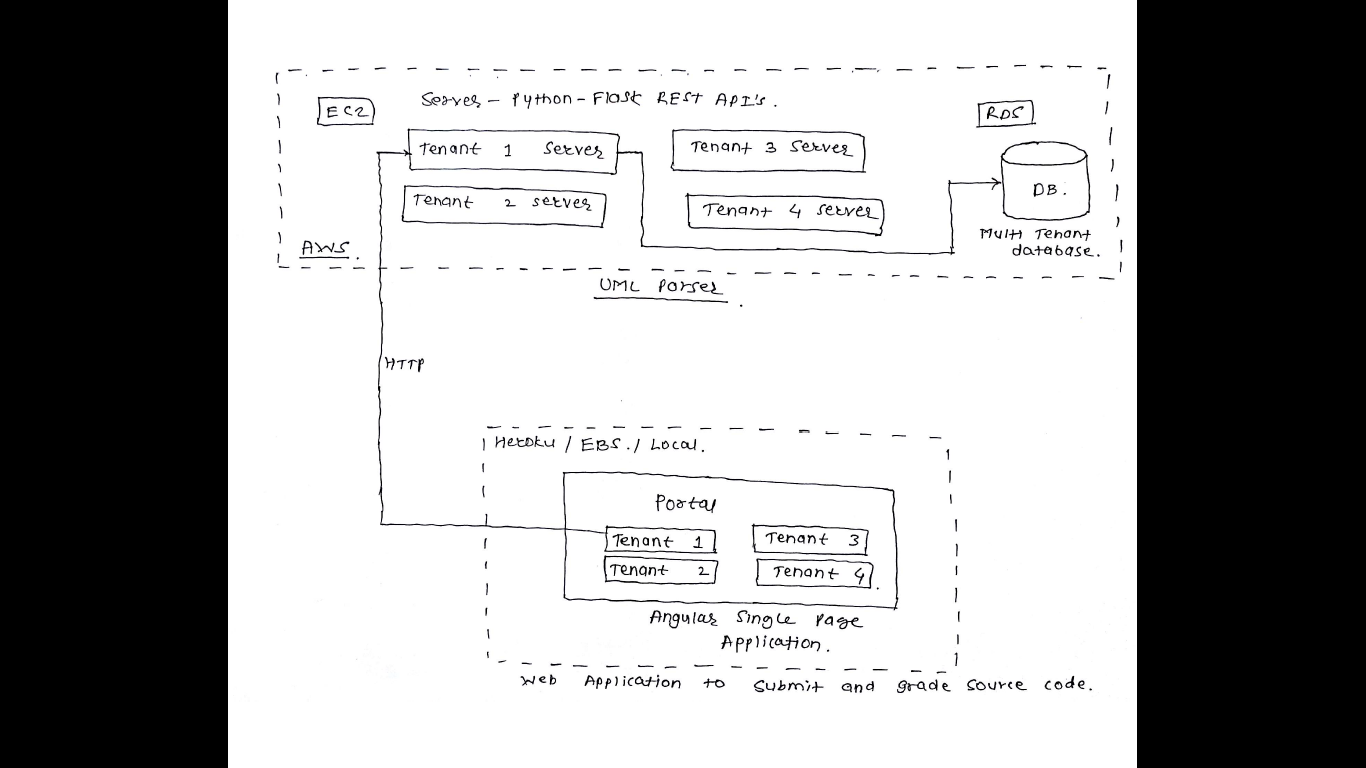 Server - Python - Flask REST API's.
EC2
RDS
Tenant 1 Server
Tenant 3 Server
Tenant 2 server
Tenant 4 server
DB.
Multi Tenant
database.
AWS.
UML Parser.
HTTP
Heroku / EBS. / Local.
Portal
Tenant 1
Tenant 3
Tenant 2
Tenant 4.
Angular Single Page
Application.
Web Application to submit and grade source code.